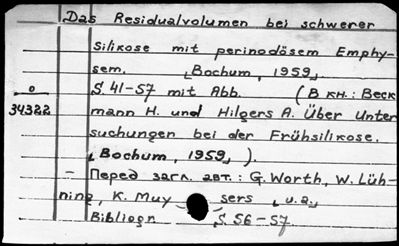 Das Residualvolumen bei schwerer
Silikose mit perinodösem Emphy-
sem. [Bochum, 1959].
S 41-57 mit Abb. (В кн.: Beck
о
34322 mann H. und Hilgers A. Über Unter
suchungen bei der Frühsilikose.
[Bochum, 1959]).
— Перед загл. авт.: G. Worth, W. Lüh-
ning, K. Muy sers [u. a.]
Bibliogr S 56-57.